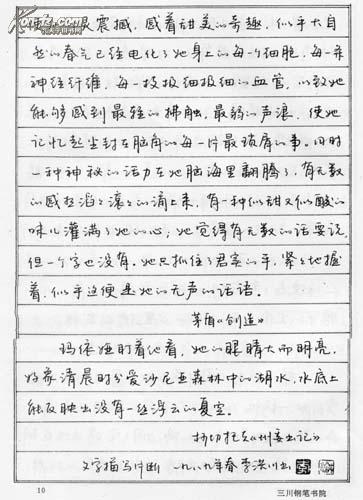 震撼，感着甜美的奇趣，似乎大自
然的春气已经电化了她身上的每一个细胞，每一条
神经纤维，每一枝极细极细的血管，以致她
能够感到最轻的拂触，最弱的声浪，使她
记忆起尘封在脑角的每一片最琐屑的事。同时
一种神秘的活力在她脑海里翻腾了，有无数
的感想滔々滚々的涌上来，有一种似甜又似酸的
味儿灌满了她的心；她觉得有无数的话要说，
但一个字也没有。她只抓住了君实的手，紧々地握
着，似乎这便是她的无声的话语。
茅盾《创造》
玛依娅盯着他看，她的眼睛大而明亮，
好象清晨时分爱沙尼亚森林中的湖水，水底上
能反映出没有一丝浮云的夏空。
柯切托夫《州委书记》
文字描写片断 一九八九年春李洪川书
10
三川钢笔书院